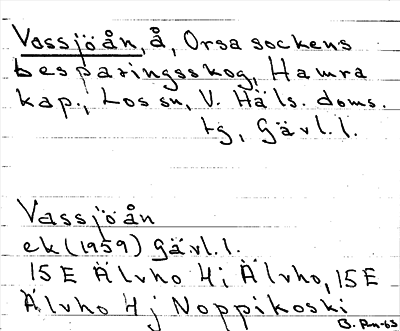 Vassjöån, å, Orsa sockens
besparingsskog, Hamra
kap., Los sn, V. Häls. doms.
tg, Gävl. l.
Vassjöån
ek (1959) Gävl. l.
15 E Älvho 4 i Älvho, 15 E
Älvho 4 j Noppikoski